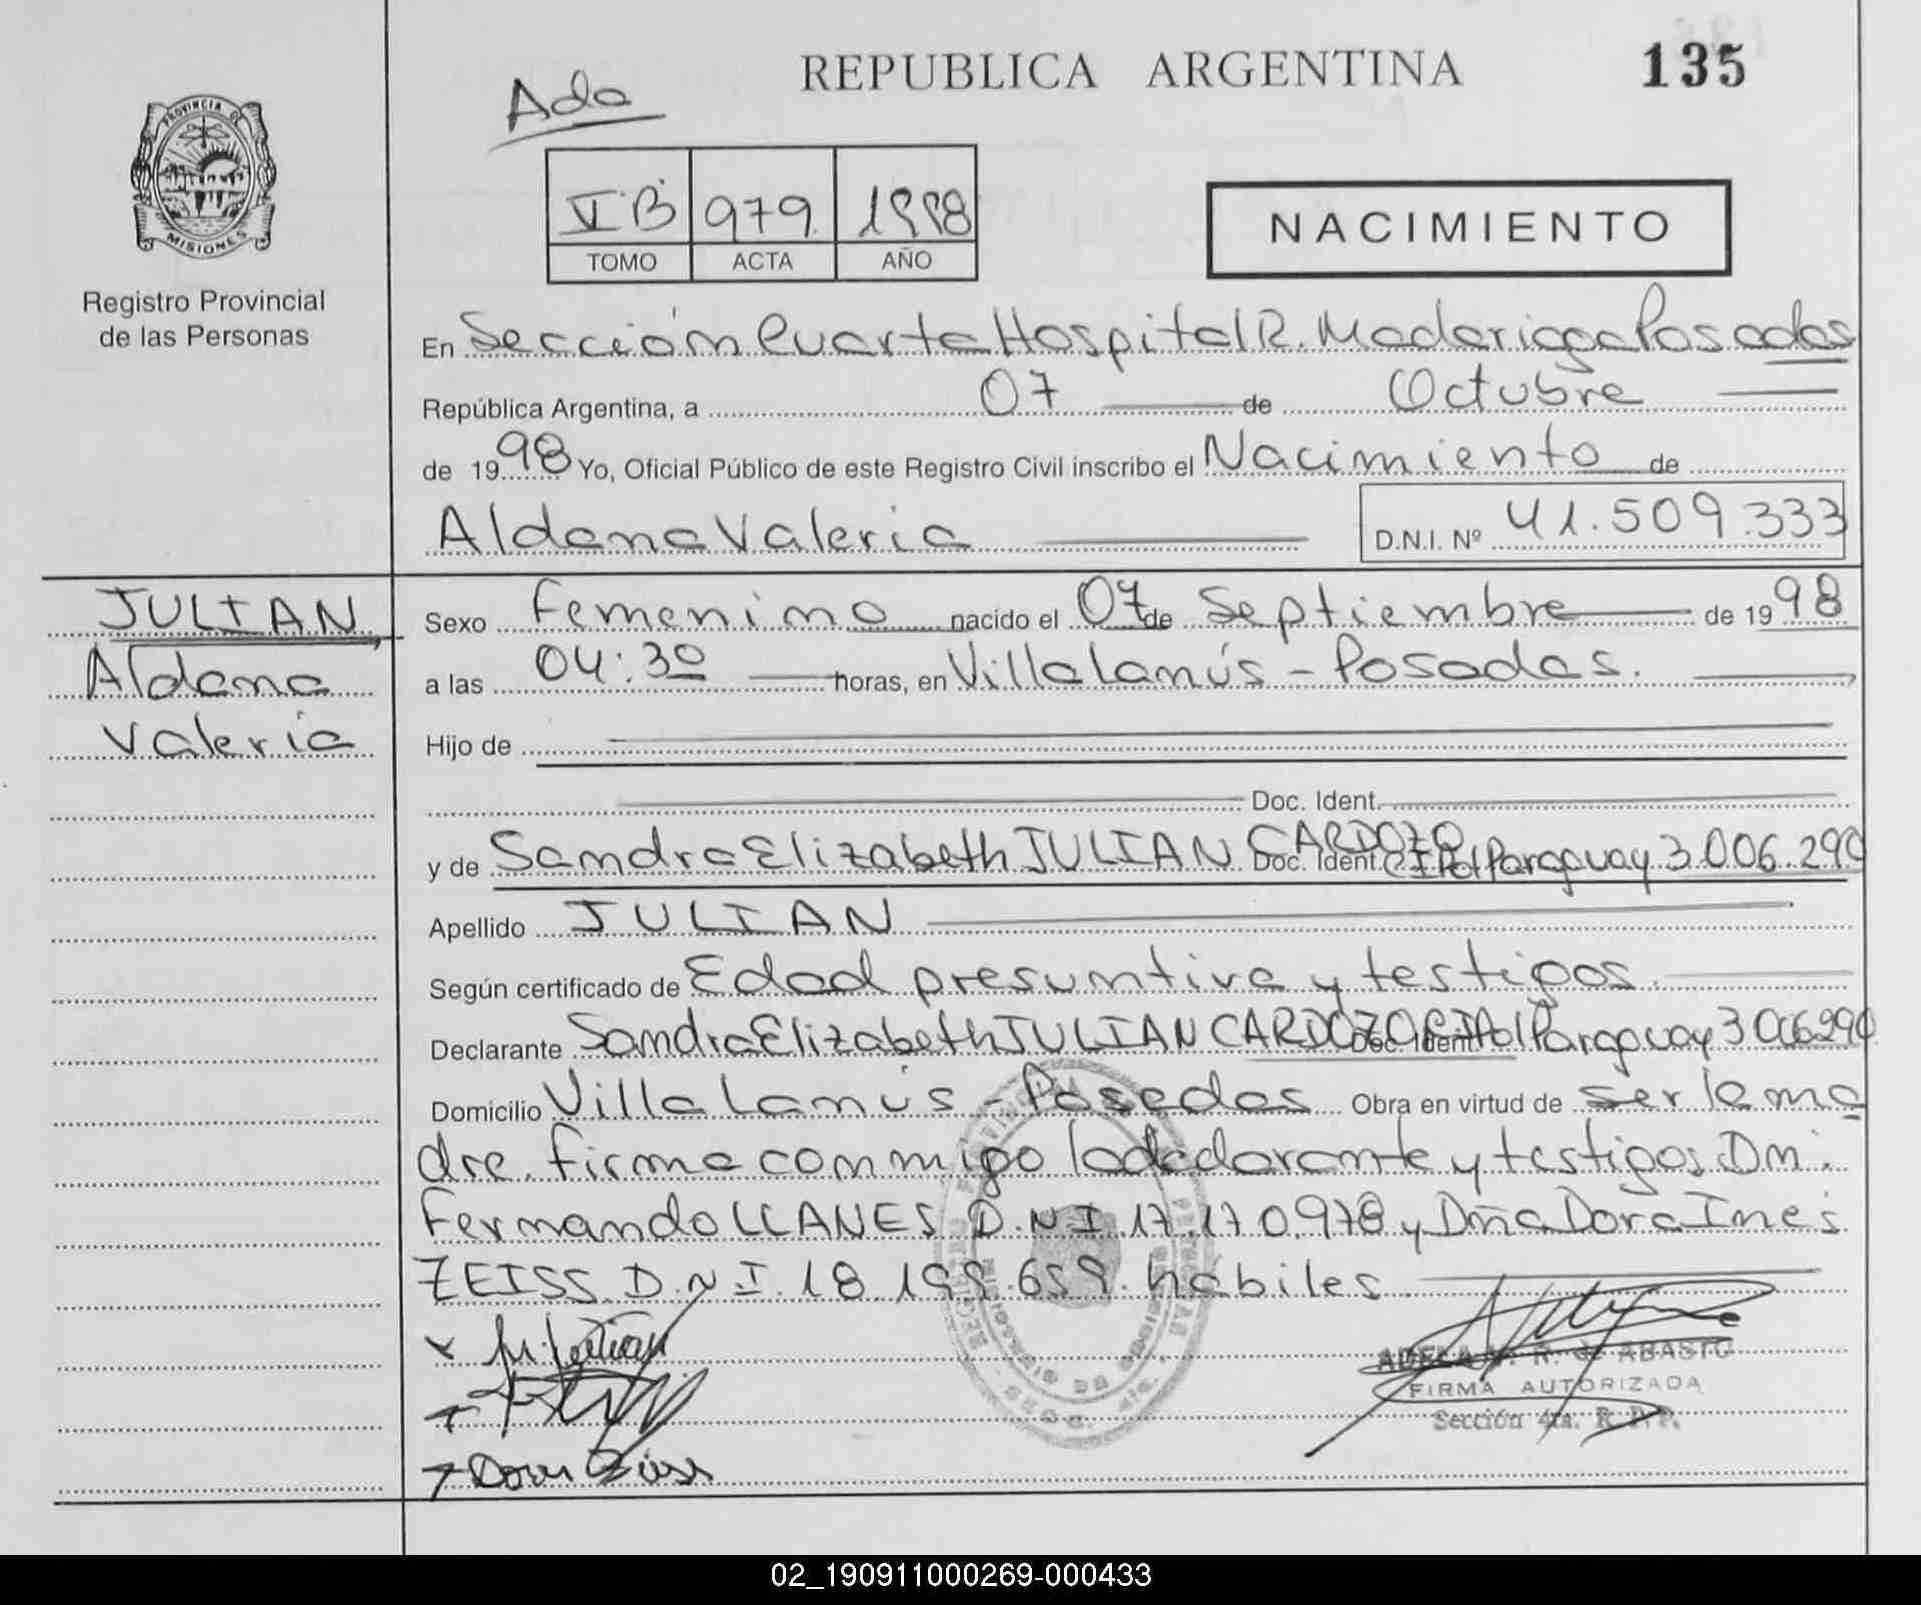 REPUBLICA ARGENTINA
135
Ada
PROVINCIA DE
MISIONES
VB 979 1998
TOMO ACTA AÑO
NACIMIENTO
Registro Provincial
de las Personas
En Sección Cuarta Hospital R. Madariaga Posadas
República Argentina, a 07 de Octubre
de 1998 Yo, Oficial Público de este Registro Civil inscribo el Nacimiento de
Aldana Valeria D.N.I. Nº 41.509.333
JULIAN
Aldana
Valeria
Sexo Femenino nacido el 07 de Septiembre de 1998
a las 04:30 horas, en Villa Lanús - Posadas.
Hijo de
Doc. Ident.
y de Sandra Elizabeth JULIAN CARDOZO Doc. Ident. CI Pol Paraguay 3.006.290
Apellido JULIAN
Según certificado de Edad presuntiva y testigos.
Declarante Sandra Elizabeth JULIAN CARDOZO Doc. Ident. CI Pol Paraguay 3006290
Domicilio Villa Lanús - Posadas Obra en virtud de ser la ma
dre. Firma conmigo la declarante y testigos Dn.
Fernando LLANES D.N.I 17.170.978 y Dña Dora Inés
ZEISS D.N.I. 18.199.659. hábiles
Dora Zeiss
ADELA R. de ABASTO
FIRMA AUTORIZADA
Sección 4ta. R.P.P.
02_190911000269-000433